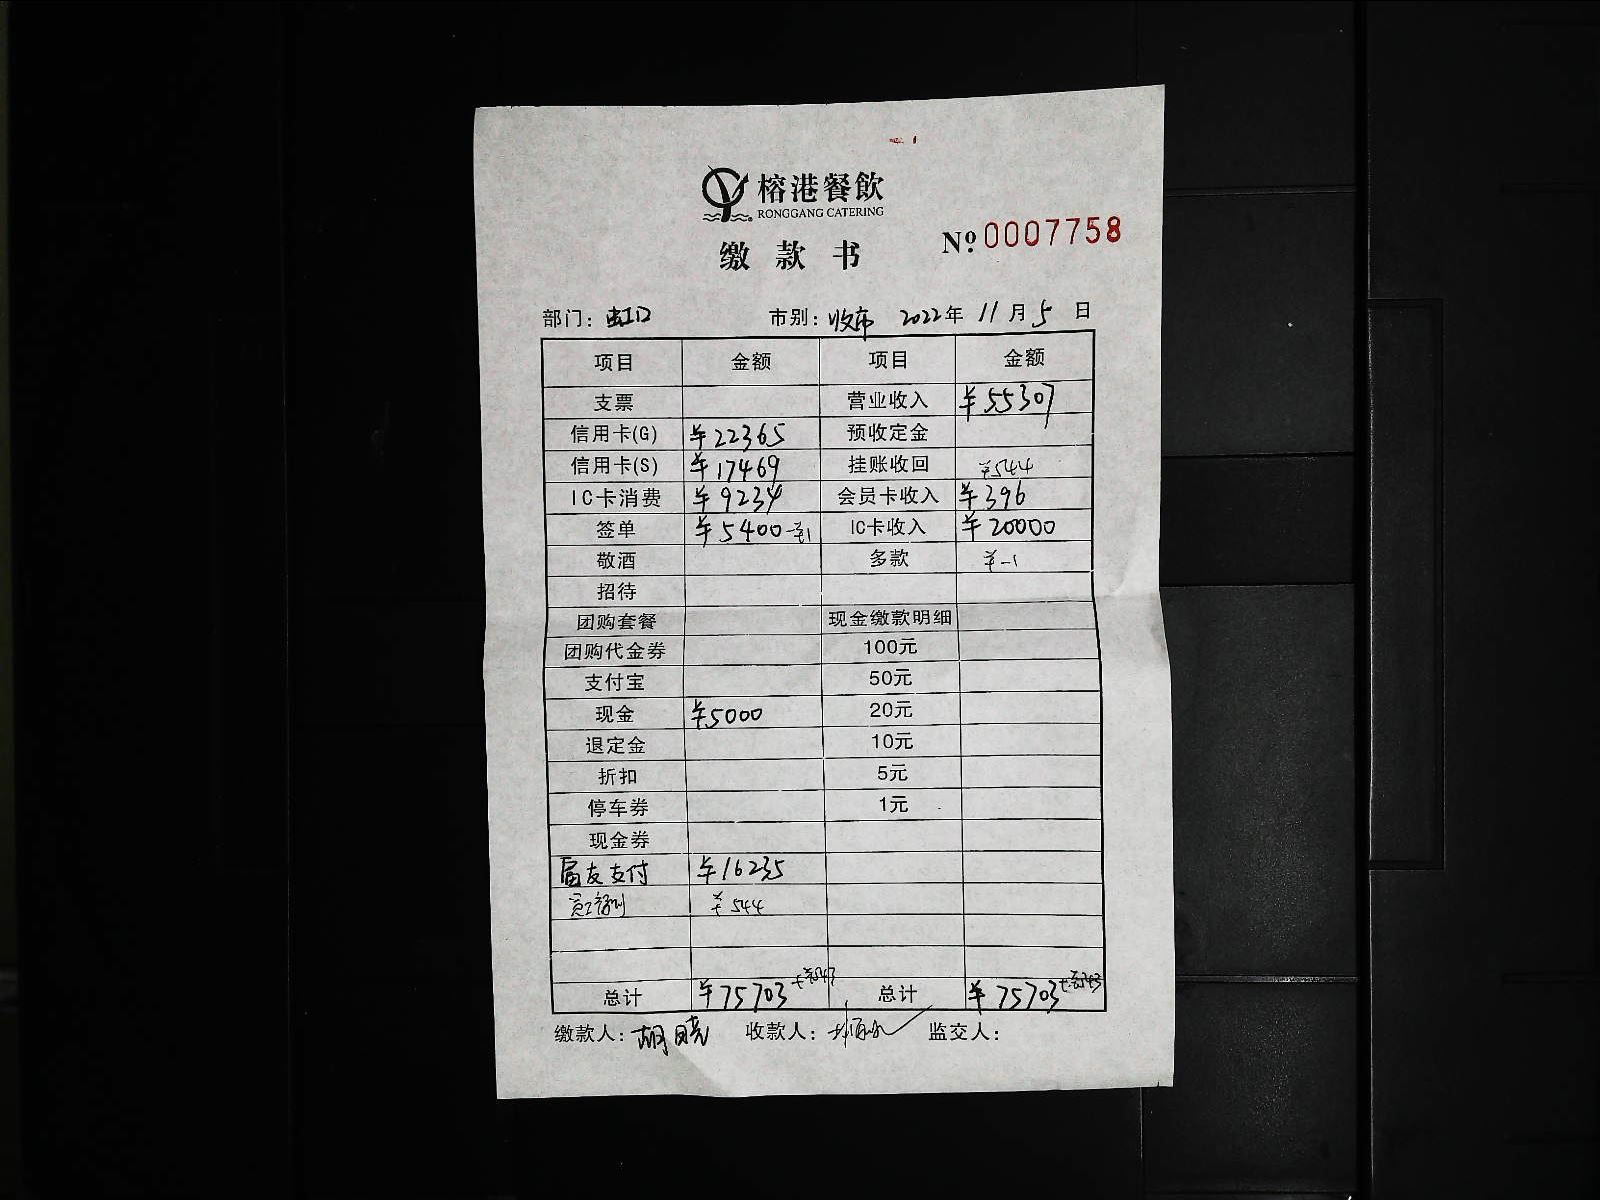 榕港餐飲
RONGGANG CATERING
缴款书 № 0007758
部门: 虹口 市别: 收市 2022年 11月 5日
项目 金额 项目 金额
支票 营业收入 ¥55307
信用卡(G) ¥22365 预收定金
信用卡(S) ¥17469 挂账收回 ¥544
IC卡消费 ¥9234 会员卡收入 ¥396
签单 ¥5400 -¥1 IC卡收入 ¥20000
敬酒 多款 ¥-1
招待
团购套餐 现金缴款明细
团购代金券 100元
支付宝 50元
现金 ¥5000 20元
退定金 10元
折扣 5元
停车券 1元
现金券
富友支付 ¥16235
¥544
总计 ¥75703 +¥543 总计 ¥75703 +¥543
缴款人: 胡晓 收款人: 监交人: